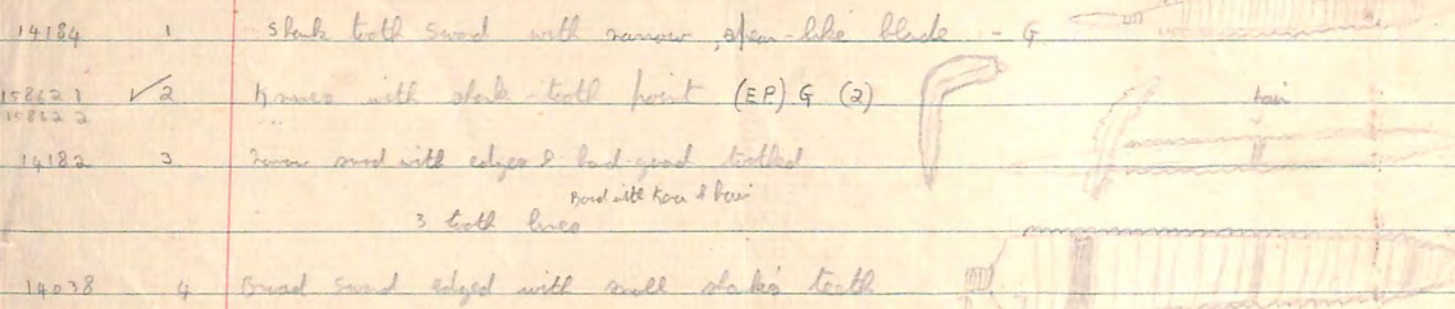 14184 1. Shark tooth sword with narrow, spear-like blade - G
158621 ✓2. Knives with shark-tooth point (EP) G (2)
158622 "
14182 3 sword with edges & hand-guard toothed
hair
Bound with & hair
3 tooth lines
14038 4 Broad sword edged with small shark's teeth